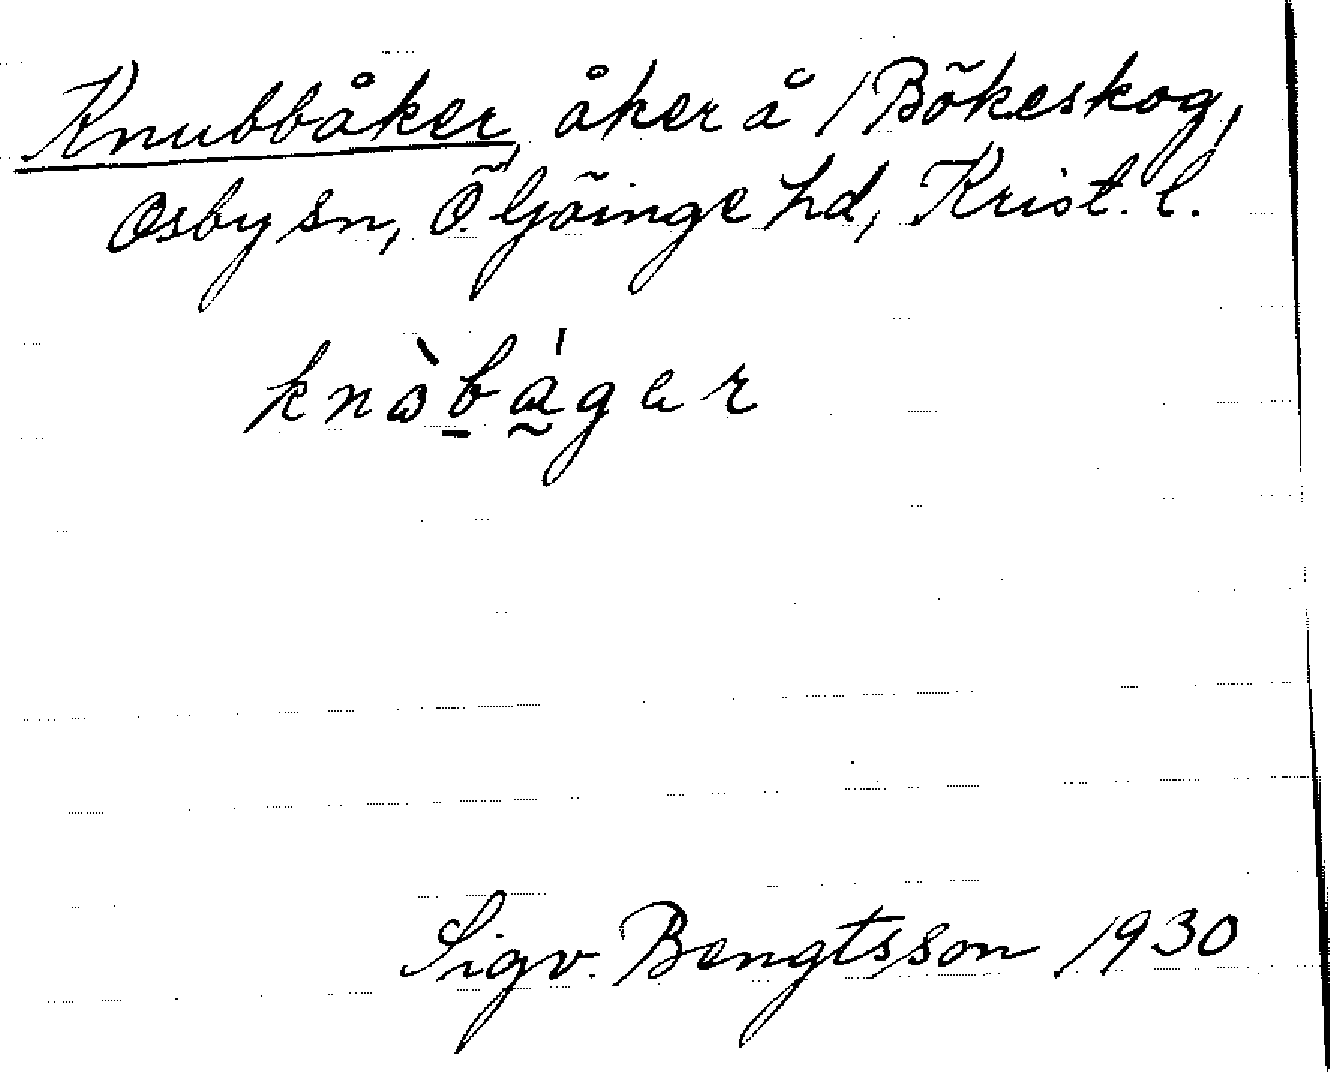 Knubbåker, åker å 1 Bökeskog,
Osby sn, Ö. Göinge hd, Krist. l.
Sigv. Bengtsson 1930